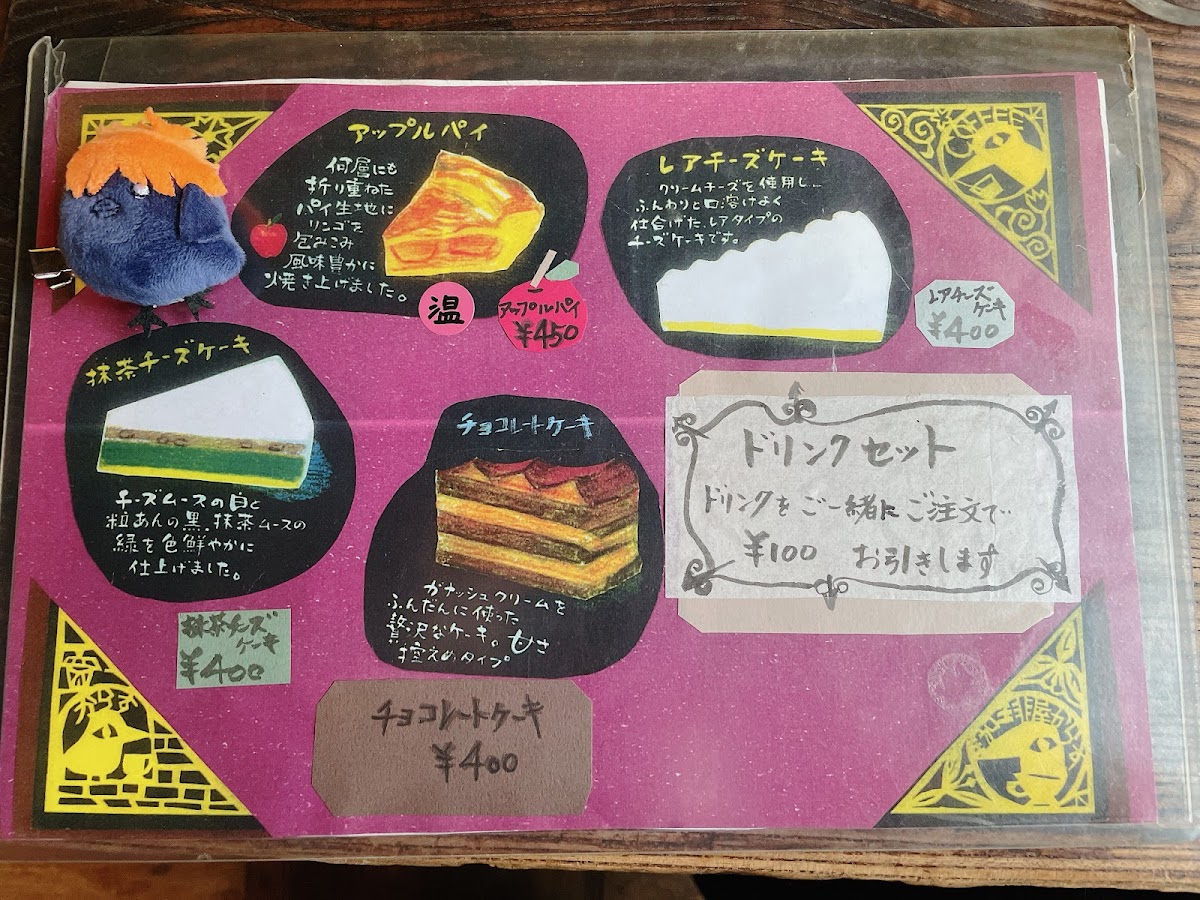 アップルパイ
何層にも
折り重ねた
パイ生地に
リンゴを
包みこみ
風味豊かに
焼き上げました。
温
アップルパイ
¥450
レアチーズケーキ
クリームチーズを使用し、
ふんわりと口溶けよく
仕上げた、レアタイプの
チーズケーキです。
レアチーズ
ケーキ
¥400
COFFEE
抹茶チーズケーキ
チーズムースの白と
粒あんの黒、抹茶ムースの
緑を色鮮やかに
仕上げました。
抹茶チーズ
ケーキ
¥400
チョコレートケーキ
ガナッシュクリームを
ふんだんに使った
贅沢なケーキ。甘さ
控えめタイプ
チョコレートケーキ
¥400
ドリンクセット
ドリンクをご一緒にご注文で
¥100 お引きします
からす